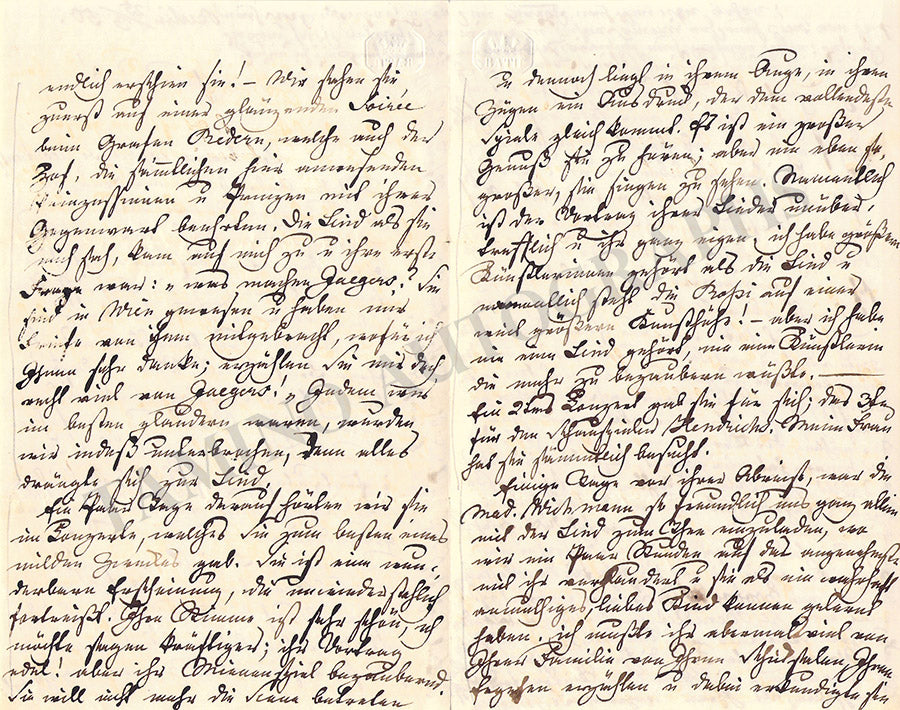 endlich erschien sie! – Wir sahen sie
zuerst auf einer glänzenden Soirée
beim Grafen Redern, welche auch der
Hof, die sämmtlichen hier anwesenden
Prinzessinnen u Prinzen mit ihrer
Gegenwart beehrten. Die Lind als sie
mich sah, kam auf mich zu u ihre erste
Frage war: „was machen Jaegers? Sie
sind in Wien gewesen u haben mir
Briefe von ihm mitgebracht, wofür ich
Ihnen sehr danke; erzählen Sie mir doch
recht viel von Jaegers!" Indem wir
im besten plaudern waren, wurden
wir indeß unterbrochen, denn alles
drängte sich zur Lind.
Ein Paar Tage darauf hörten wir sie
im Conzerte, welches sie zum besten eines
milden Zweckes gab. Sie ist eine wun-
derbare Erscheinung, die unwiderstehlich
fortreißt. Ihre Stimme ist sehr schön, ich
möchte sagen kräftiger; ihr Vortrag
edel! aber ihr Mienenspiel bezaubernd.
Sie will nicht mehr die Scene betreten
u dennoch liegt in ihrem Auge, in ihren
Zügen ein Ausdruck, der dem vollendetsten
Spiele gleich kommt. Es ist ein großer
Genuß sie zu hören; aber ein eben so
großer, sie singen zu sehen. Namentlich
ist der Vortrag ihrer Lieder unüber-
trefflich u ihr ganz eigen. ich habe größere
Künstlerinnen gehört als die Lind u
namentlich steht die Roßi auf einer
viel größern Kunsthöhe! – aber ich habe
nie eine Lind gehört, nie eine Künstlerin
die mehr zu bezaubern wüßte. –
Ein 2tes Conzert gab sie für sich; das 3te
für den Schauspieler Hendrichs. Meine Frau
hat sie sämmtlich besucht.
Einige Tage vor ihrer Abreise, war die
Mad. Wichmann so freundlich uns ganz allein
mit der Lind zum Thee einzuladen, wo
wir ein Paar Stunden auf das angenehmste
mit ihr verplaudert u sie als ein wahrhaft
anmuthiges, liebes Kind kennen gelernt
haben. ich mußte ihr abermals viel von
Ihrer Familie von Ihren Schicksalen, Ihrem
Ergehen erzählen u dabei erkundigte sie
TAMINO AUTOGRAPHS
BATH
BATH